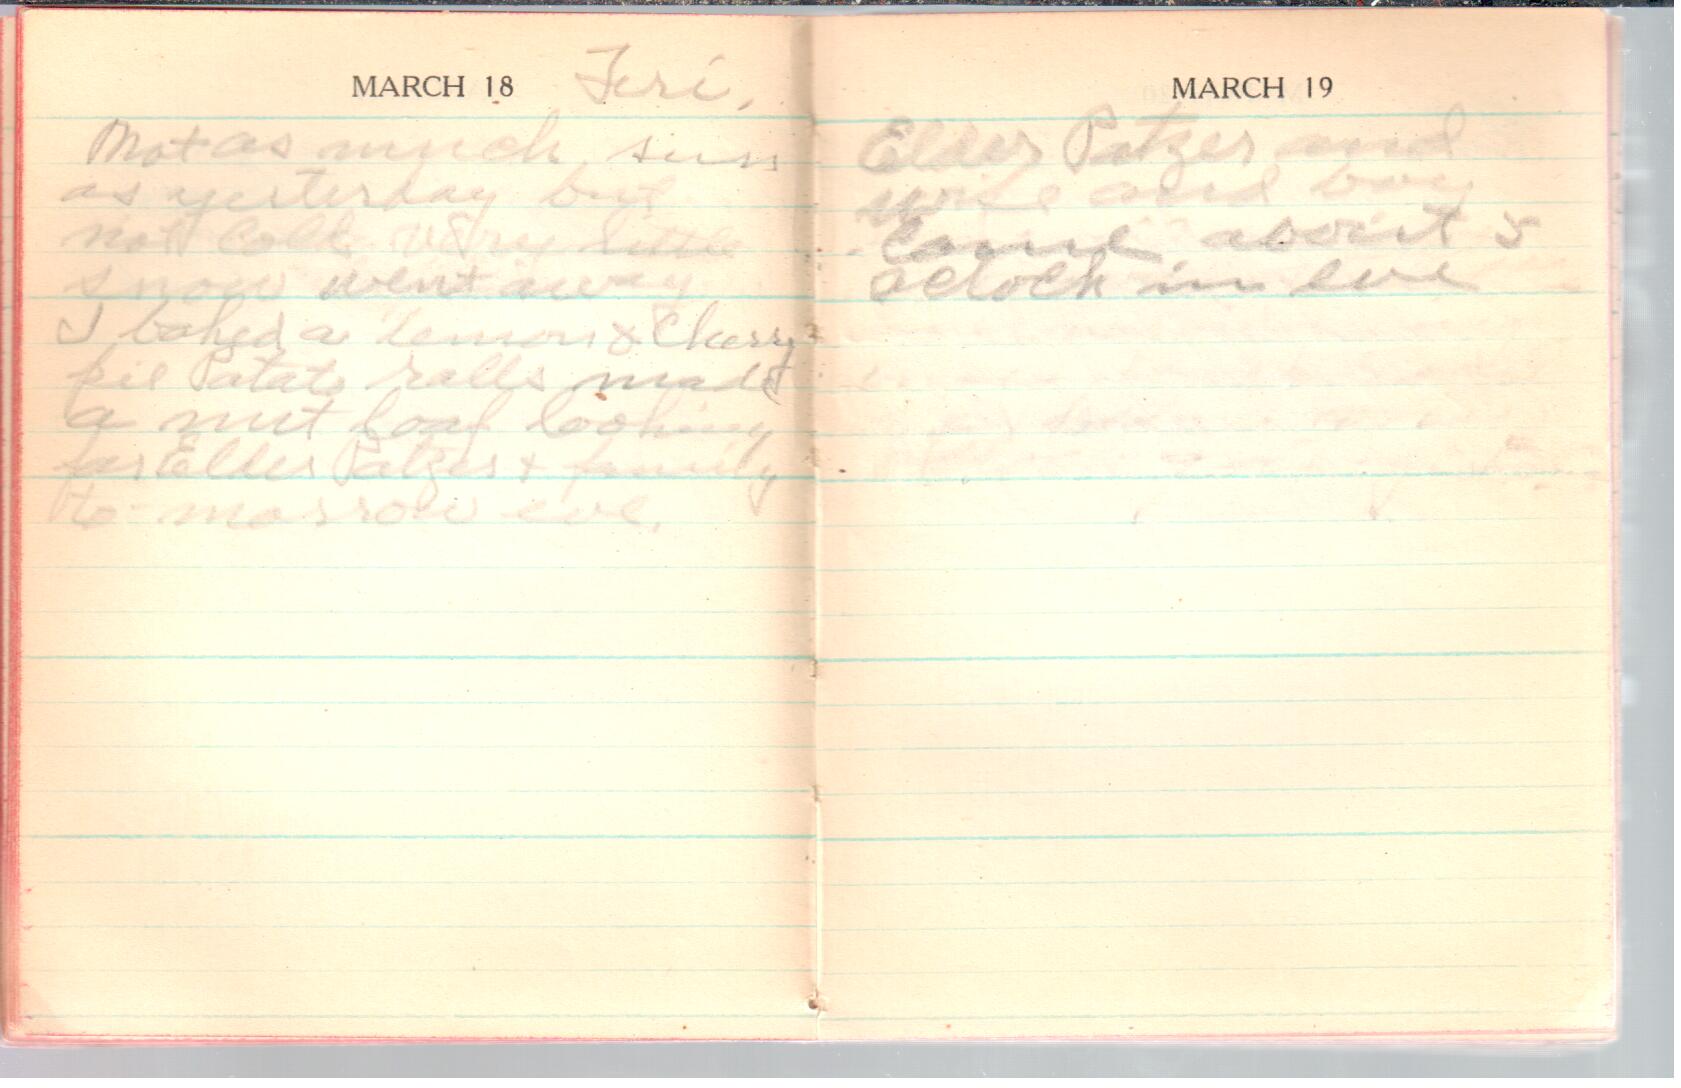 MARCH 18 Fri.
Not as much sun
as yesterday but
not cold very little
snow went away
I baked a lemon & cherry
pie Potato rolls made
a nut loaf looking
for Elder Patzer + family
to-morrow eve.
MARCH 19
Elder Patzer and
wife and boy
came about 5
oclock in eve